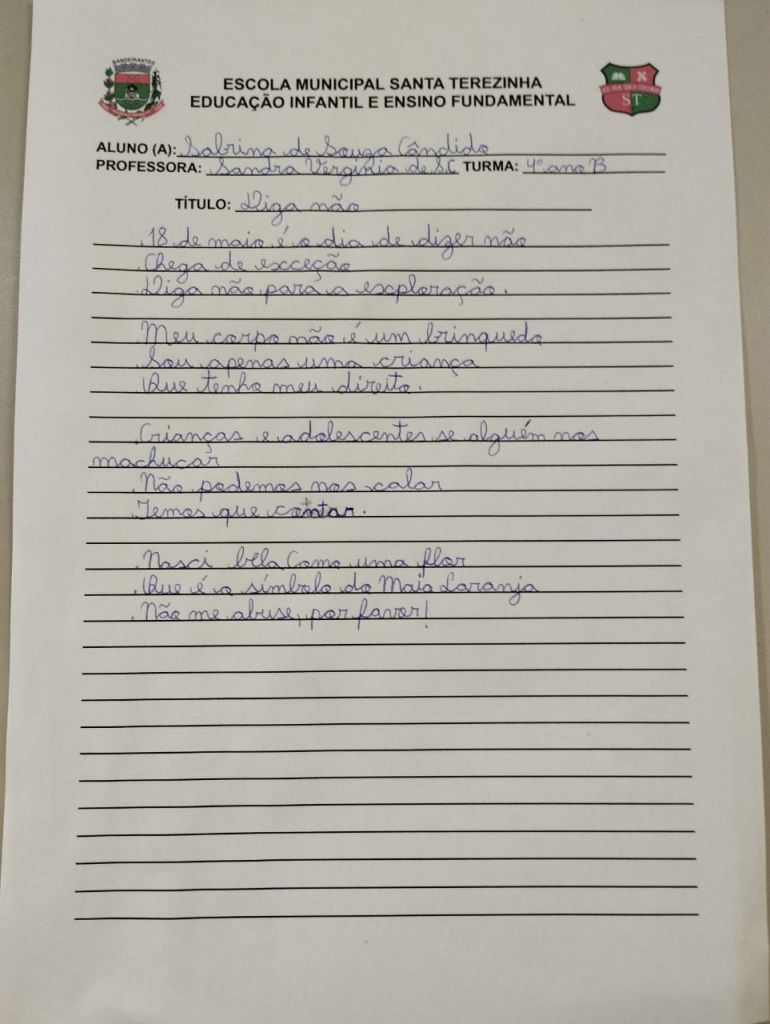 BANDEIRANTES
ESCOLA MUNICIPAL SANTA TEREZINHA
EDUCAÇÃO INFANTIL E ENSINO FUNDAMENTAL
ST
ALUNO (A): Sabrina de Souza Cândido
PROFESSORA: Sandra Vergínia de SC TURMA: 4º ano B
TÍTULO: Diga não
18 de maio é o dia de dizer não
Chega de exceção
Diga não para a exploração.
Meu corpo não é um brinquedo
Sou apenas uma criança
Que tenho meu direito.
Crianças e adolescentes se alguém nos
machucar
Não podemos nos calar
Temos que contar.
Nasci bela Como uma flor
Que é o símbolo do Maio Laranja
Não me abuse, por favor!